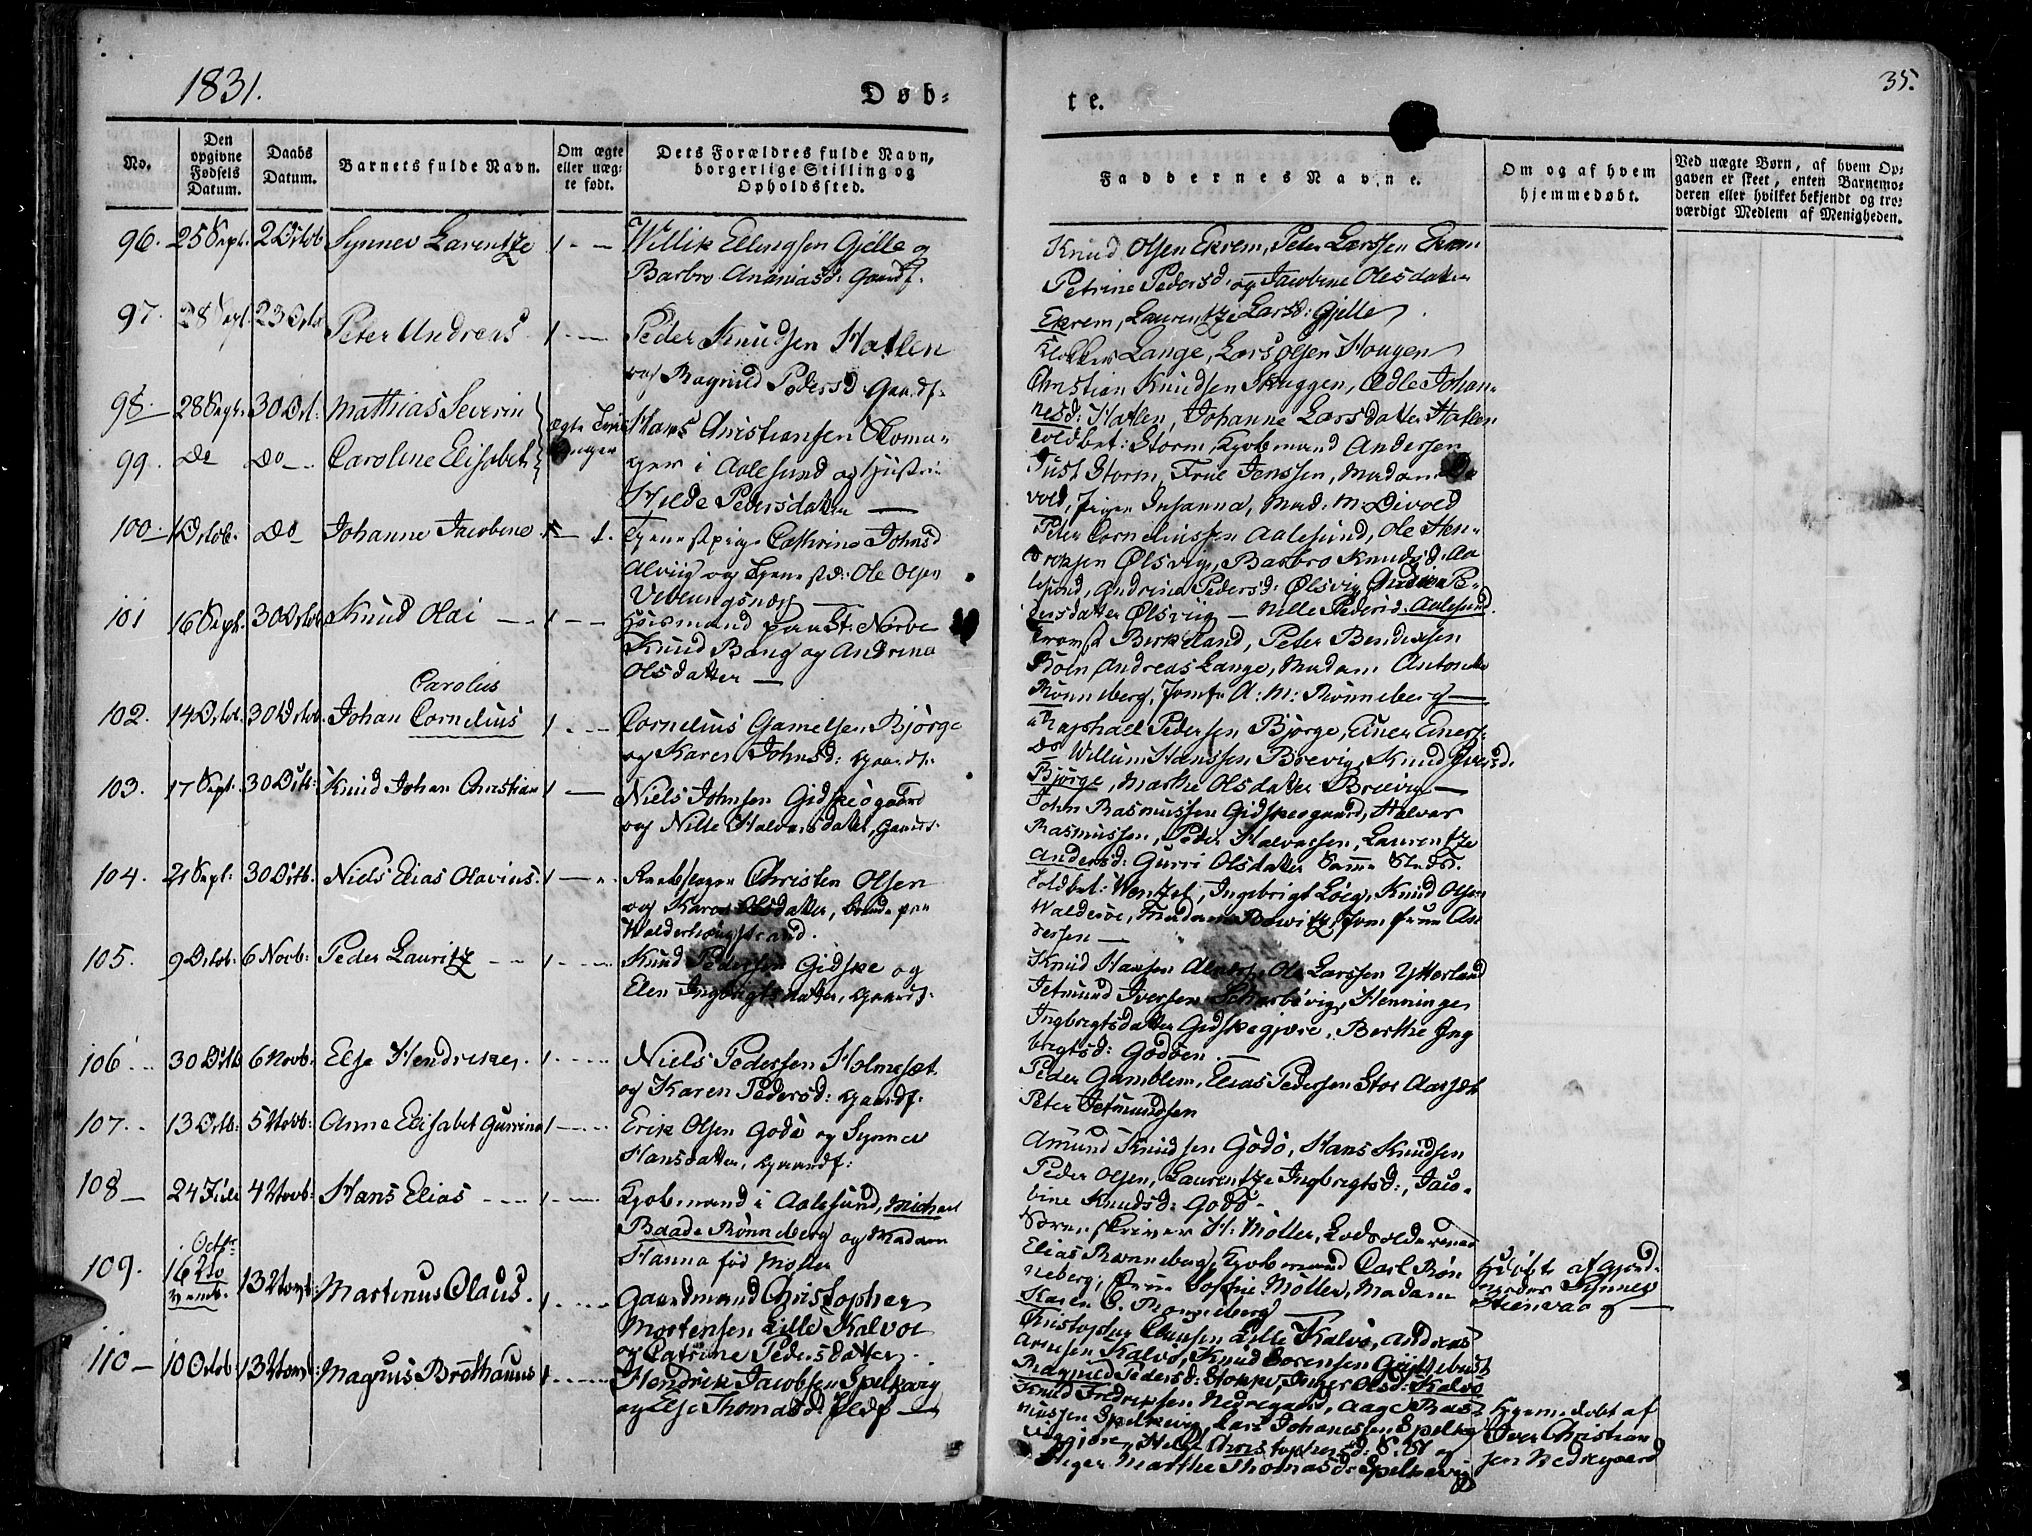 1831.
Døb-
te.
35.
No.
Den opgivne Fødsels Datum.
Daabs Datum.
Barnets fulde Navn.
Om ægte eller uæg- te født.
Dets Forældres fulde Navn, borgerlige Stilling og Opholdssted.
Faddernes Navne.
Om og af hvem hjemmedøbt.
Ved uægte Børn, af hvem Op- gaven er skeet, enten Barnemo- deren eller hvilket bekjendt og tro- værdigt Medlem af Menigheden.
96. 25 Sept. 2 Octob Synnev Larentze 1 - -
Willik Ellingsen Gjelle og
Barbro Ananiasd: Gaardf.
Knud Olsen Ekrem, Peter Larssen Ekrem
Petrine Pedersd. og Jacobine Olesdatter
Ekrem, Laurentze Larsd: Gjelle
97. 28 Sept. 23 Octob Peter Andreas 1 - -
Peder Knudsen Hatlen
og Ragnild Pedersd Gaardf.
Klokker Lange, Lars Olsen Hougen
Christian Knudsen Skuggen, Ædle Johan-
nesd: Hatlen, Johanne Larsdatter Hatlen
98. 28 Sept. 30 Oct: Mathias Severin
99. Do Do - Caroline Elisabet
Hans Christiansen Skoma-
ger i Aalesund og Hustru
Hilde Pedersdatter
Toldbet: Storm, Kjøbmand Andersen
Just Storm, Frue Jenssen, Madam De
vold, Susanna, Mad. M. Devold
100 - 1 Octob. Do Johanne Jacobine
Tjenestpige Cathrine Johnsd
Alviig og Tjenestd: Ole Olsen
Veblungsnæs
Peter Corneliussen Aalesund, Ole Hen-
driksen Ølsvig, Barbro Knudsd. Aa
lesund, Andrine Pedersd: Ølsvig, Andrea P-
edersdatter Ølsviig - Nille Pedersd. Aalesund.
101 16 Sept. 30 Octob Knud Olai - - 1 - -
Huusmand paa St: Nørve
Knud Bang og Andrina
Olsdatter -
Birkeland, Peter Bendixsen
Andreas Lange, Madam Antonette
Rønneberg, Jomfr A: M: Rønneberg
102. 14 Octob. 30 Octob. Johan Carolus Cornelius 1 - -
Cornelius Gamelsen Bjørge
og Karen Johnsd: Gaardf.
Raphael Pedersen Bjørge, Einer Einers-
Do Willum Hanssen Brevig, Knud
Bjørge, Marthe Olsdatter Breivig
103. 17 Sept. 30 Octb: Knud Johan Christian 1 -
Niels Johnsen Gidskeøgaard
og Nille Halvorsdatter, Gaardf.
John Rasmussen Gidskeøgaard, Halvor
Rasmussen, Peder Halvorsen, Laurentze
Andersd: Gurri Olsdatter Samme Steds.
104. 21 Sept. 30 Octb. Niels Elias Olavius. 1 - -
Christen Olsen
og Karen Olsdatter, paa
Walderhougstrand.
Toldbet: Wentzel, Ingebrigt Løeg, Knud Olsen
Walderøe, Madam Jomfrue An
dersen -
105. 9 Octob. 6 Novb: Peder Lauritz - - 1 - -
Knud Pedersen Gidske og
Elen Ingbrigtsdatter, Gaardf:
Knud Hansen Alnes, Ole Larssen Ytterland
Jetmund Iversen Skarbøvig, Henninge
Ingbregtsdatter Gidskegjøre, Berthe Ing
bregtsd: Godøen. -
106. 30 Octb 6 Novb: Else Hendrikke. 1 - -
Niels Pedersen Holmeset.
og Karen Pedersd: Gaardf.
Peder Gamblem, Elias Pedersen Stor Aarsæt
Peter Jetmundsen
107. 13 Octb: 5 Novb: Anne Elisabet Gurrina 1 - -
Erik Olsen Godø og Synnev
Hansdatter, Gaardf:
Amund Knudsen Godø, Hans Knudsen
Peder Olsen, Laurentze Ingbregtsd:, Jaco-
bine Knudsd: Godø -
108 - 24 Juli 4 Novb: Hans Elias - - 1 - -
Kjøbmand i Aalesund, Michael
Baade Rønneberg og Madam
Hanna fød Møller
Sorenskriver H. Møller, Lodsoldermand
Elias Rønneberg, Kjøbmand Carl Røn
neberg, Frue Sophie Møller, Madam
Karen C. Rønneberg
109. Octbr 16 No vemb. 13 Novb: Martinus Olaus. 1 - -
Gaardmand Christopher
Mortensen Lille Kalvøe
og Catrine Pedersdatter.
Christopher Clausen Lille Kalvø, Andreas
Arnesen Kalvø, Knud Sørensen Gjettebust
Ragnild Pedersd: Stokke, Olsd: Kalvø
Hdøbt af Gjord-
moder Synnev
Steenvaag -
110 - 10 Octob. 13 Novb: Magnus Brothanus 1 - -
Hendrik Jacobsen Spelkavig
og Else Thomasd: Plds -
Knud Fredriksen Nedregaard, Aage Ras-
mussen Spelkevig, Lars Johanessen Spelkevig
Christophersd: S. St og
Piger Marthe Thomasd: Spelkevig
Hjemmedøbt af
Iver Christian
sen Nedregaard